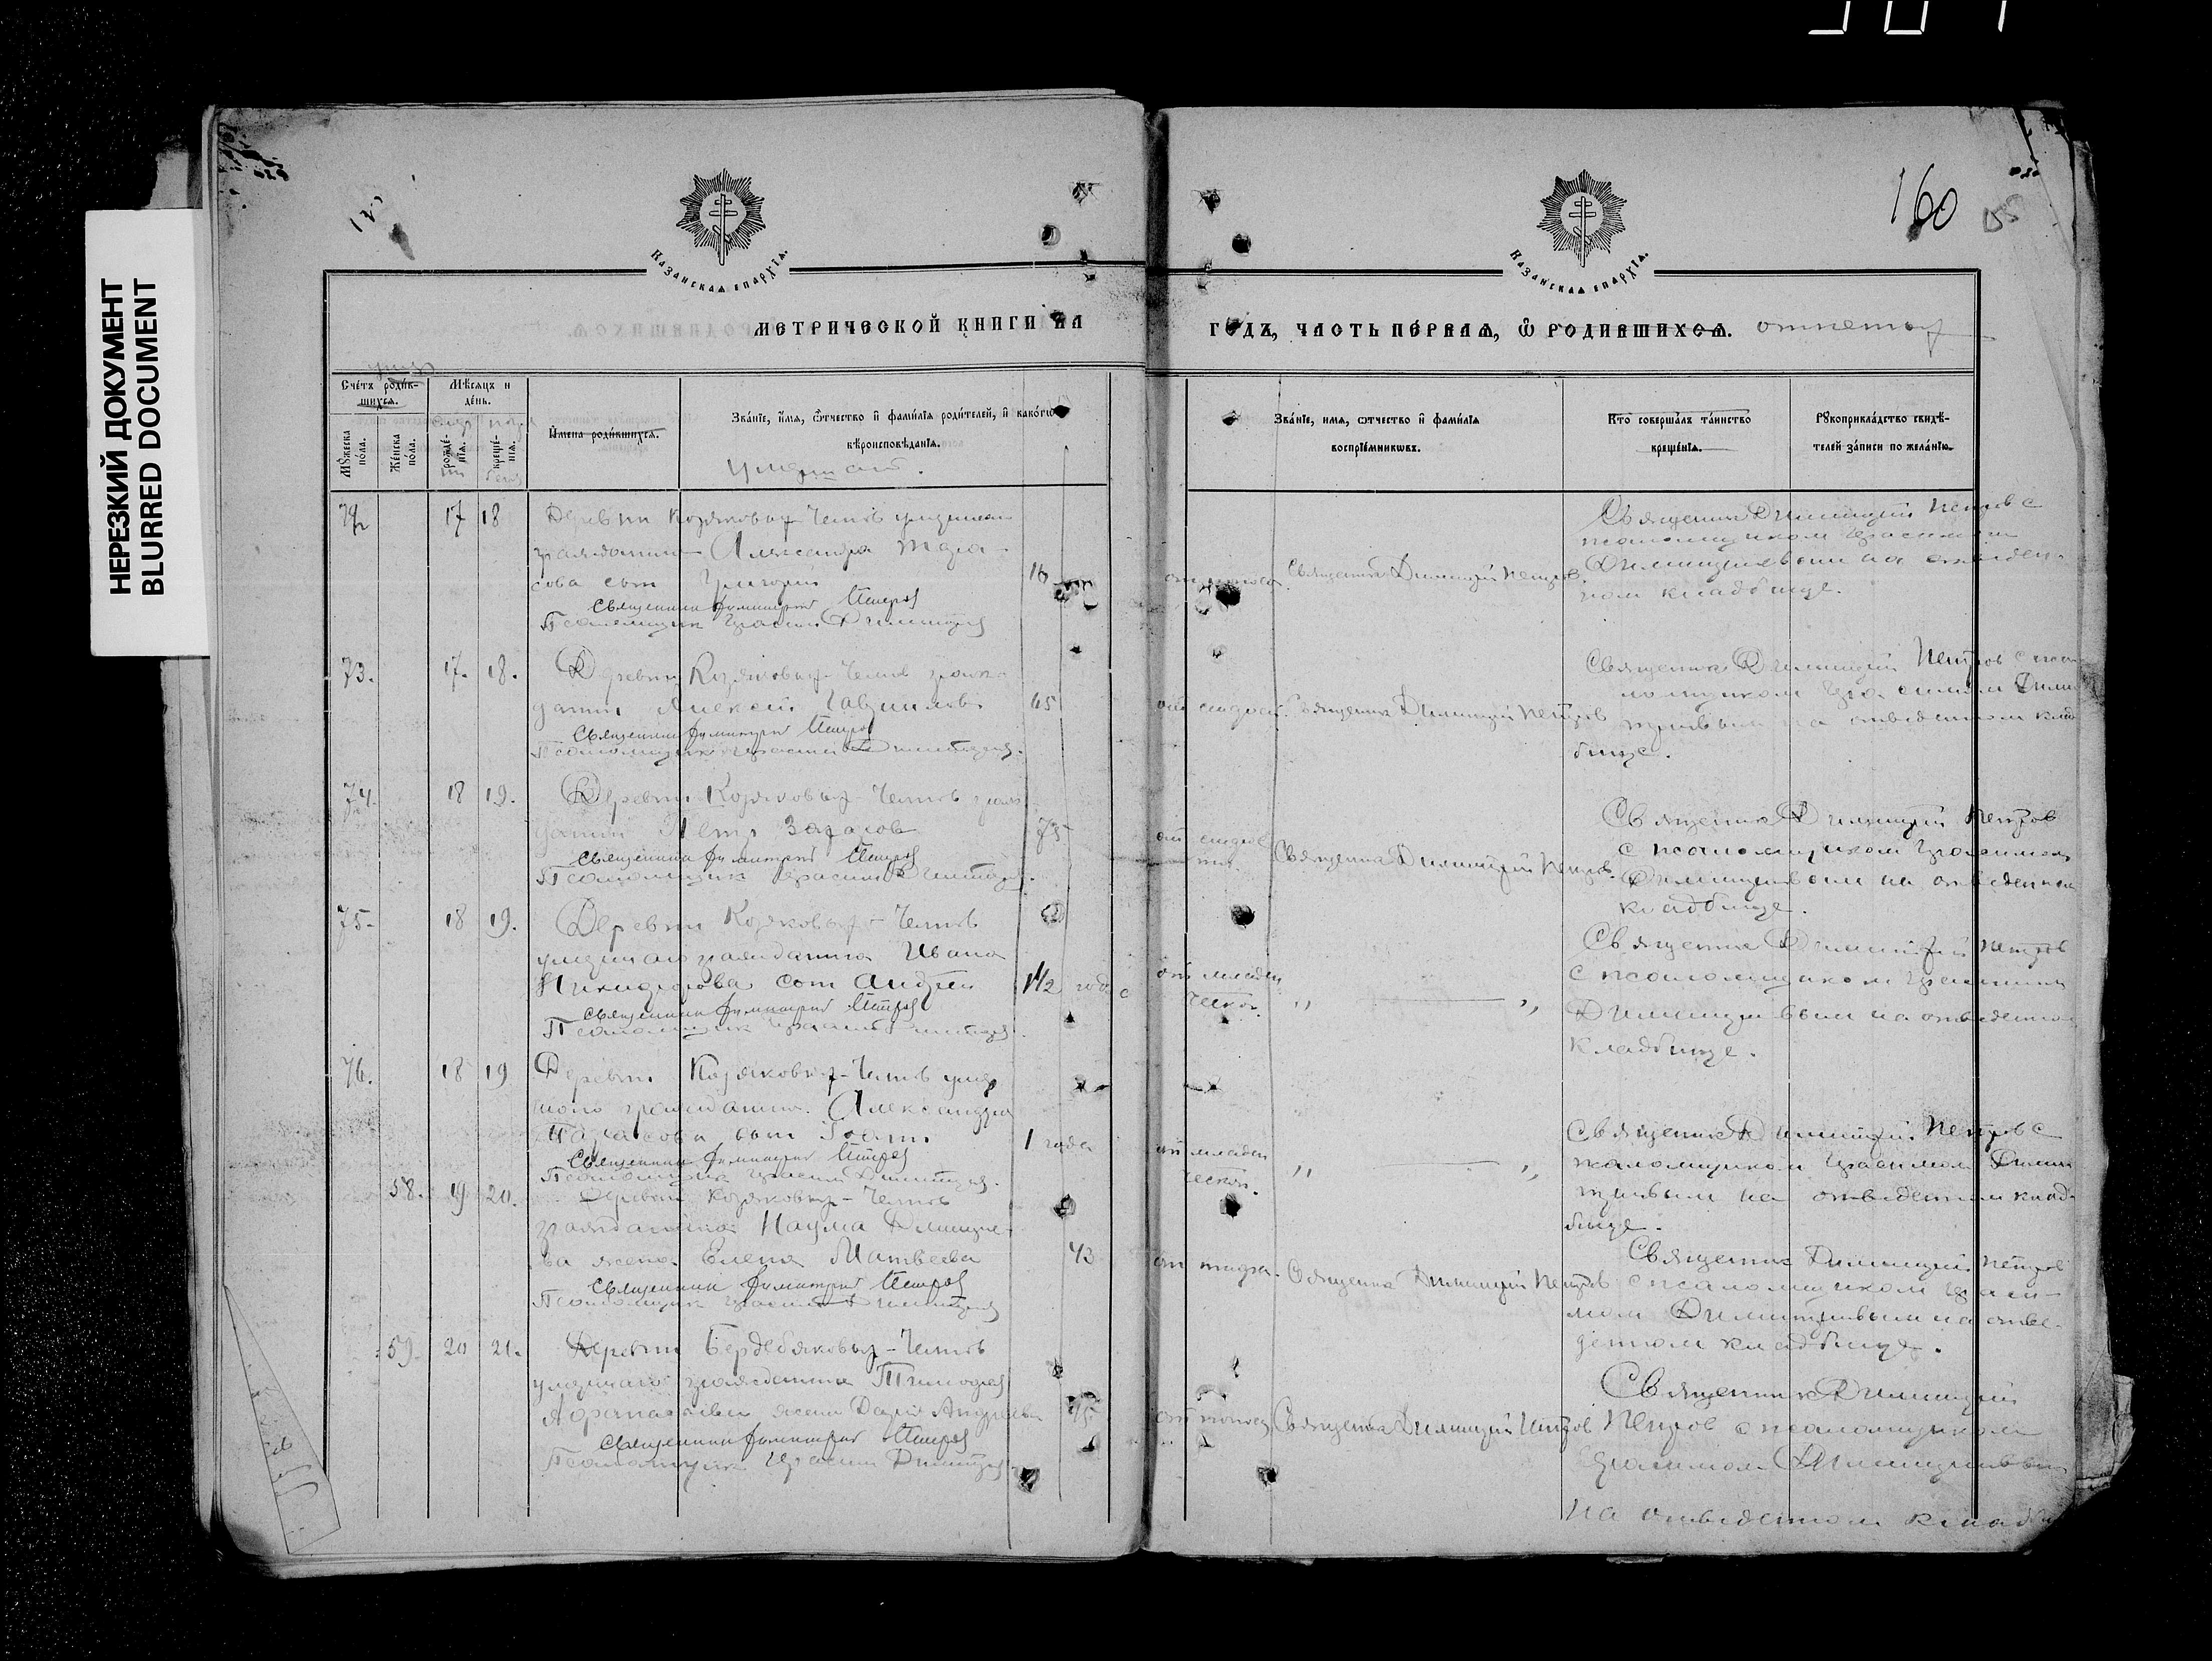 НЕРЕЗКИЙ ДОКУМЕНТ
BLURRED DOCUMENT
160
Казанская епархїѧ.
Казанская епархїѧ.
МЕТРИЧЕСКОЙ КНИГИ НА
ГОДЪ, ЧАСТЬ ПЕРВАЯ, Ѿ РОДИВШИХСЯ.
Счетъ родив-
шихся.
Мѣсяцъ и
день.
Мужеска
пола.
Женска
пола.
рожде-
нїя.
креще-
нїя.
Имена родившихся.
Званїе, имя, отчество и фамилїя родителей, и какогw
вѣроисповѣданїя.
Званїе, имя, отчество и фамилїя
воспрїемниковъ.
Кто совершалъ таинство
крещенїя.
Рукоприкладство свидѣ-
телей записи по желанїю.
17 18
Александра
сова сын
Священник Димитрий Петров
Псаломщик Герасим Димитриев
Священник Димитрий Петров
Священник Димитрий Петров с
псаломщиком Герасимом
Димитриевым на отведен-
ном кладбище.
73. 17. 18.
Деревни Козяковых-Челнов граж-
данин Алексей Гаврилов 65
Священник Димитрий Петров
Псаломщик Герасим Димитриев.
Священник Димитрий Петров
Священник Димитрий Петров с пса
ломщиком Герасимом Дими
триевым на отведенном клад
бище.
74. 18 19.
Деревни Козяковых-Челнов граж
данин Петр Захаров 73
Священник Димитрий Петров
Псаломщик Герасим Димитриев.
Священник Димитрий Петров.
Священник Димитрий Петров
с псаломщиком Герасимом
Димитриевым на отведенном
кладбище.
75. 18 19.
Деревни Козяковых-Челнов
умершаго гражданина Ивана
Никифорова сын Андрей 1 1/2 года
Священник Димитрий Петров
Псаломщик Герасим Димитриев.
от младен
ческой. „ — „
Священник Димитрий Петров
с псаломщиком Герасимом
Димитриевым на отведенном
кладбище.
76. 18 19
Деревни Козяковых-Челнов умер
шаго гражданина Александра
Тарасова сын Иоанн 1 года
Священник Димитрий Петров
Псаломщик Герасим Димитриев.
от младен
ческой. „ — „
Священник Димитрий Петров с
псаломщиком Герасимом Димит
триевым на отведенном клад
бище.
58. 19 20.
Деревни Козяковых-Челнов
гражданина Наума Димитрие-
ва жена Елена Матвеева 43
Священник Димитрий Петров
Псаломщик Герасим Димитриев
Священник Димитрий Петров
Священник Димитрий Петров
с псаломщиком Гераси-
мом Димитриевым на отве-
денном кладбище.
59. 20 21.
Деревни Бердебяковых-Челнов
умершаго гражданина Тимофея
Афанасьева жена Дария Андреева 75
Священник Димитрий Петров
Псаломщик Герасим Димитриев
Священник Димитрий Петров
Священник Димитрий
Петров с псаломщиком
Герасимом Димитриевым
на отведенном кладби